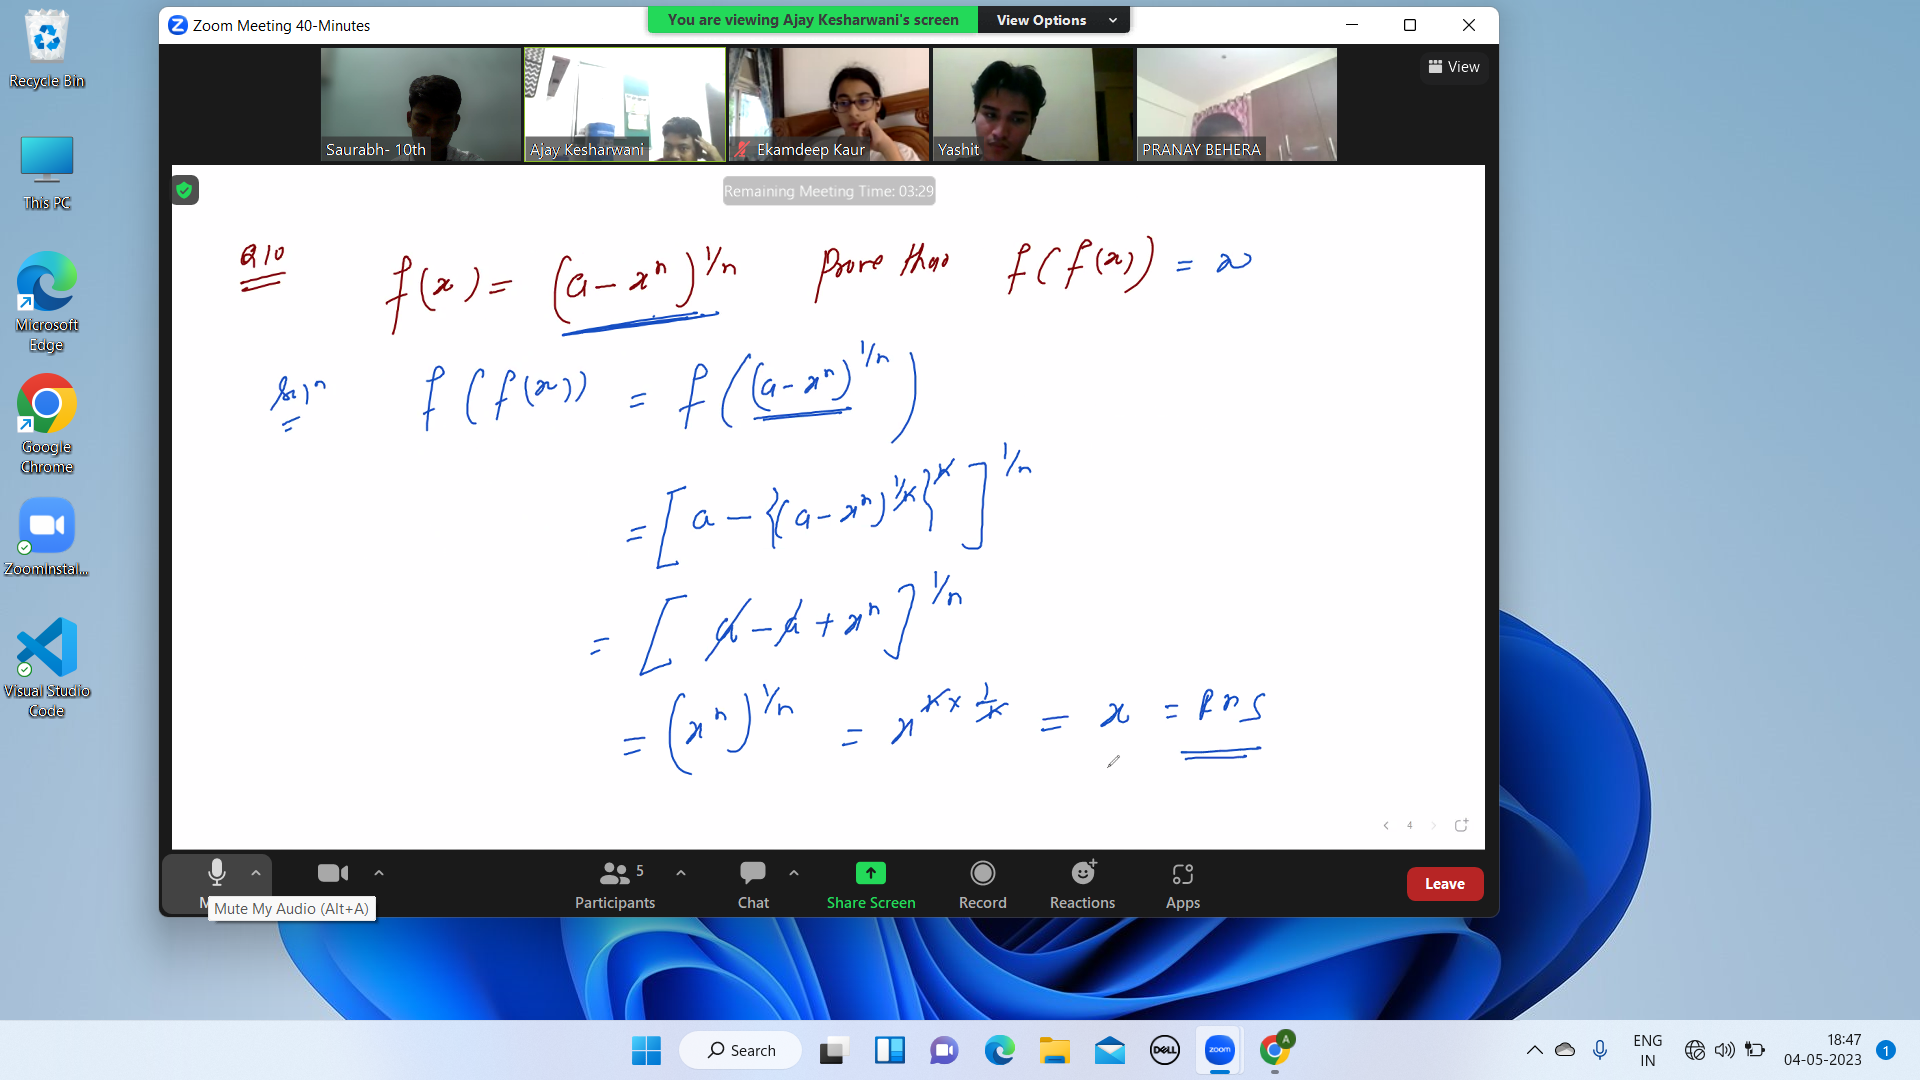 Recycle Bin
This PC
Microsoft Edge
Google Chrome
ZoomInstal...
Visual Studio Code
Zoom Meeting 40-Minutes
You are viewing Ajay Kesharwani's screen
View Options
View
Saurabh- 10th
Ajay Kesharwani
Ekamdeep Kaur
Yashit
PRANAY BEHERA
Remaining Meeting Time: 03:29
Q10 f(x) = (a - xⁿ)^1/n Prove that f(f(x)) = x
Solⁿ f(f(x)) = f((a - xⁿ)^1/n)
= [a - {(a - xⁿ)^1/n}^n]^1/n
= [a - a + xⁿ]^1/n
= (xⁿ)^1/n = x^n × 1/n = x = RHS
4
Mute My Audio (Alt+A)
Participants 5
Chat
Share Screen
Record
Reactions
Apps
Leave
Search
DELL
zoom
A
ENG
IN
18:47
04-05-2023
1